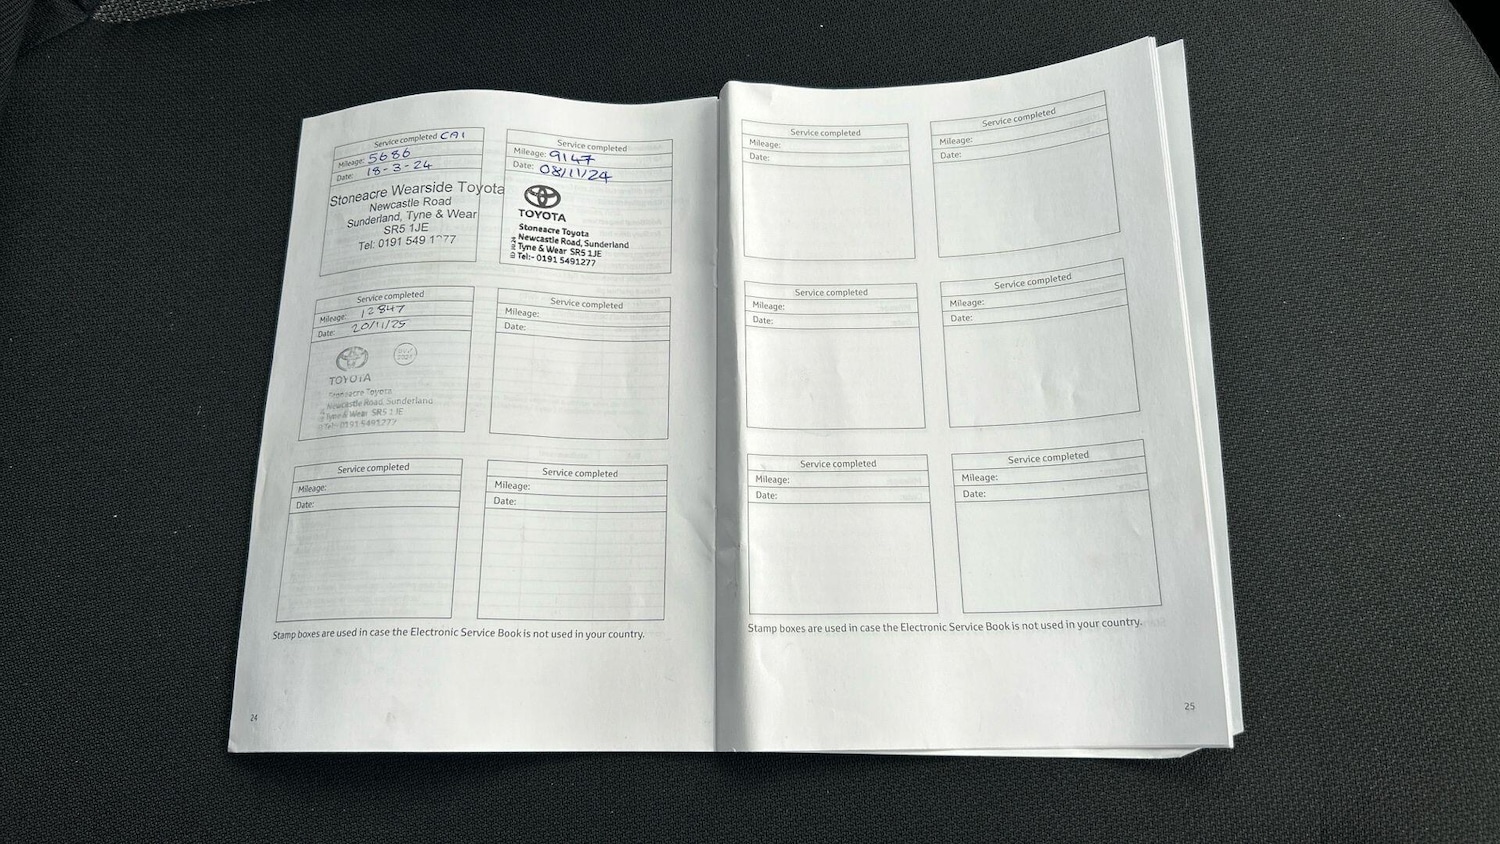 Service completed CA1
Mileage: 5686
Date: 18-3-24
Stoneacre Wearside Toyota
Newcastle Road
Sunderland, Tyne & Wear
SR5 1JE
Tel: 0191 549 1277
Service completed
Mileage: 9147
Date: 08/11/24
TOYOTA
Stoneacre Toyota
Newcastle Road, Sunderland
Tyne & Wear SR5 1JE
Tel:- 0191 5491277
Service completed
Mileage: 12847
Date: 20/11/25
TOYOTA
Stoneacre Toyota
Newcastle Road, Sunderland
Tyne & Wear SR5 1JE
Tel:- 0191 5491277
Service completed
Mileage:
Date:
Service completed
Mileage:
Date:
Service completed
Mileage:
Date:
Stamp boxes are used in case the Electronic Service Book is not used in your country.
24
Service completed
Mileage:
Date:
Service completed
Mileage:
Date:
Service completed
Mileage:
Date:
Service completed
Mileage:
Date:
Service completed
Mileage:
Date:
Service completed
Mileage:
Date:
Stamp boxes are used in case the Electronic Service Book is not used in your country.
25